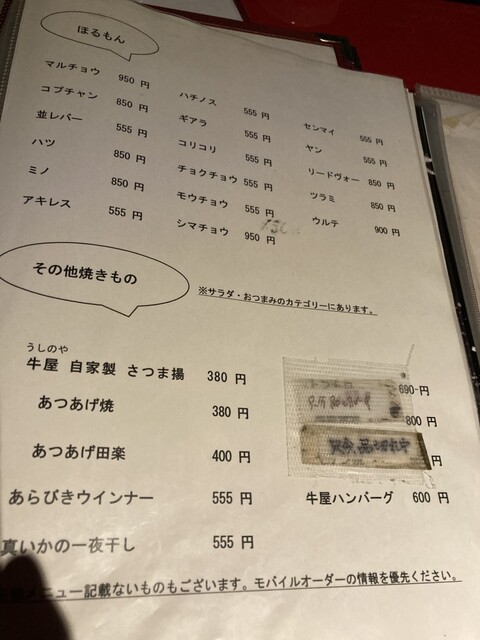 ほるもん
マルチョウ 950 円
コプチャン 850 円
並レバー 555 円
ハツ 850 円
ミノ 850 円
アキレス 555 円
ハチノス 555 円
ギアラ 555 円
コリコリ 555 円
チョクチョウ 555 円
モウチョウ 555 円
シマチョウ 950 円
センマイ 555 円
ヤン 555 円
リードヴォー 850 円
ツラミ 850 円
ウルテ 900 円
その他焼きもの
※サラダ・おつまみのカテゴリーにあります。
うしのや
牛屋 自家製 さつま揚 380 円
あつあげ焼 380 円
あつあげ田楽 400 円
あらびきウインナー 555 円
真いかの一夜干し 555 円
690 円
800 円
品切れ中
円
牛屋ハンバーグ 600 円
メニュー記載ないものもございます。モバイルオーダーの情報を優先ください。